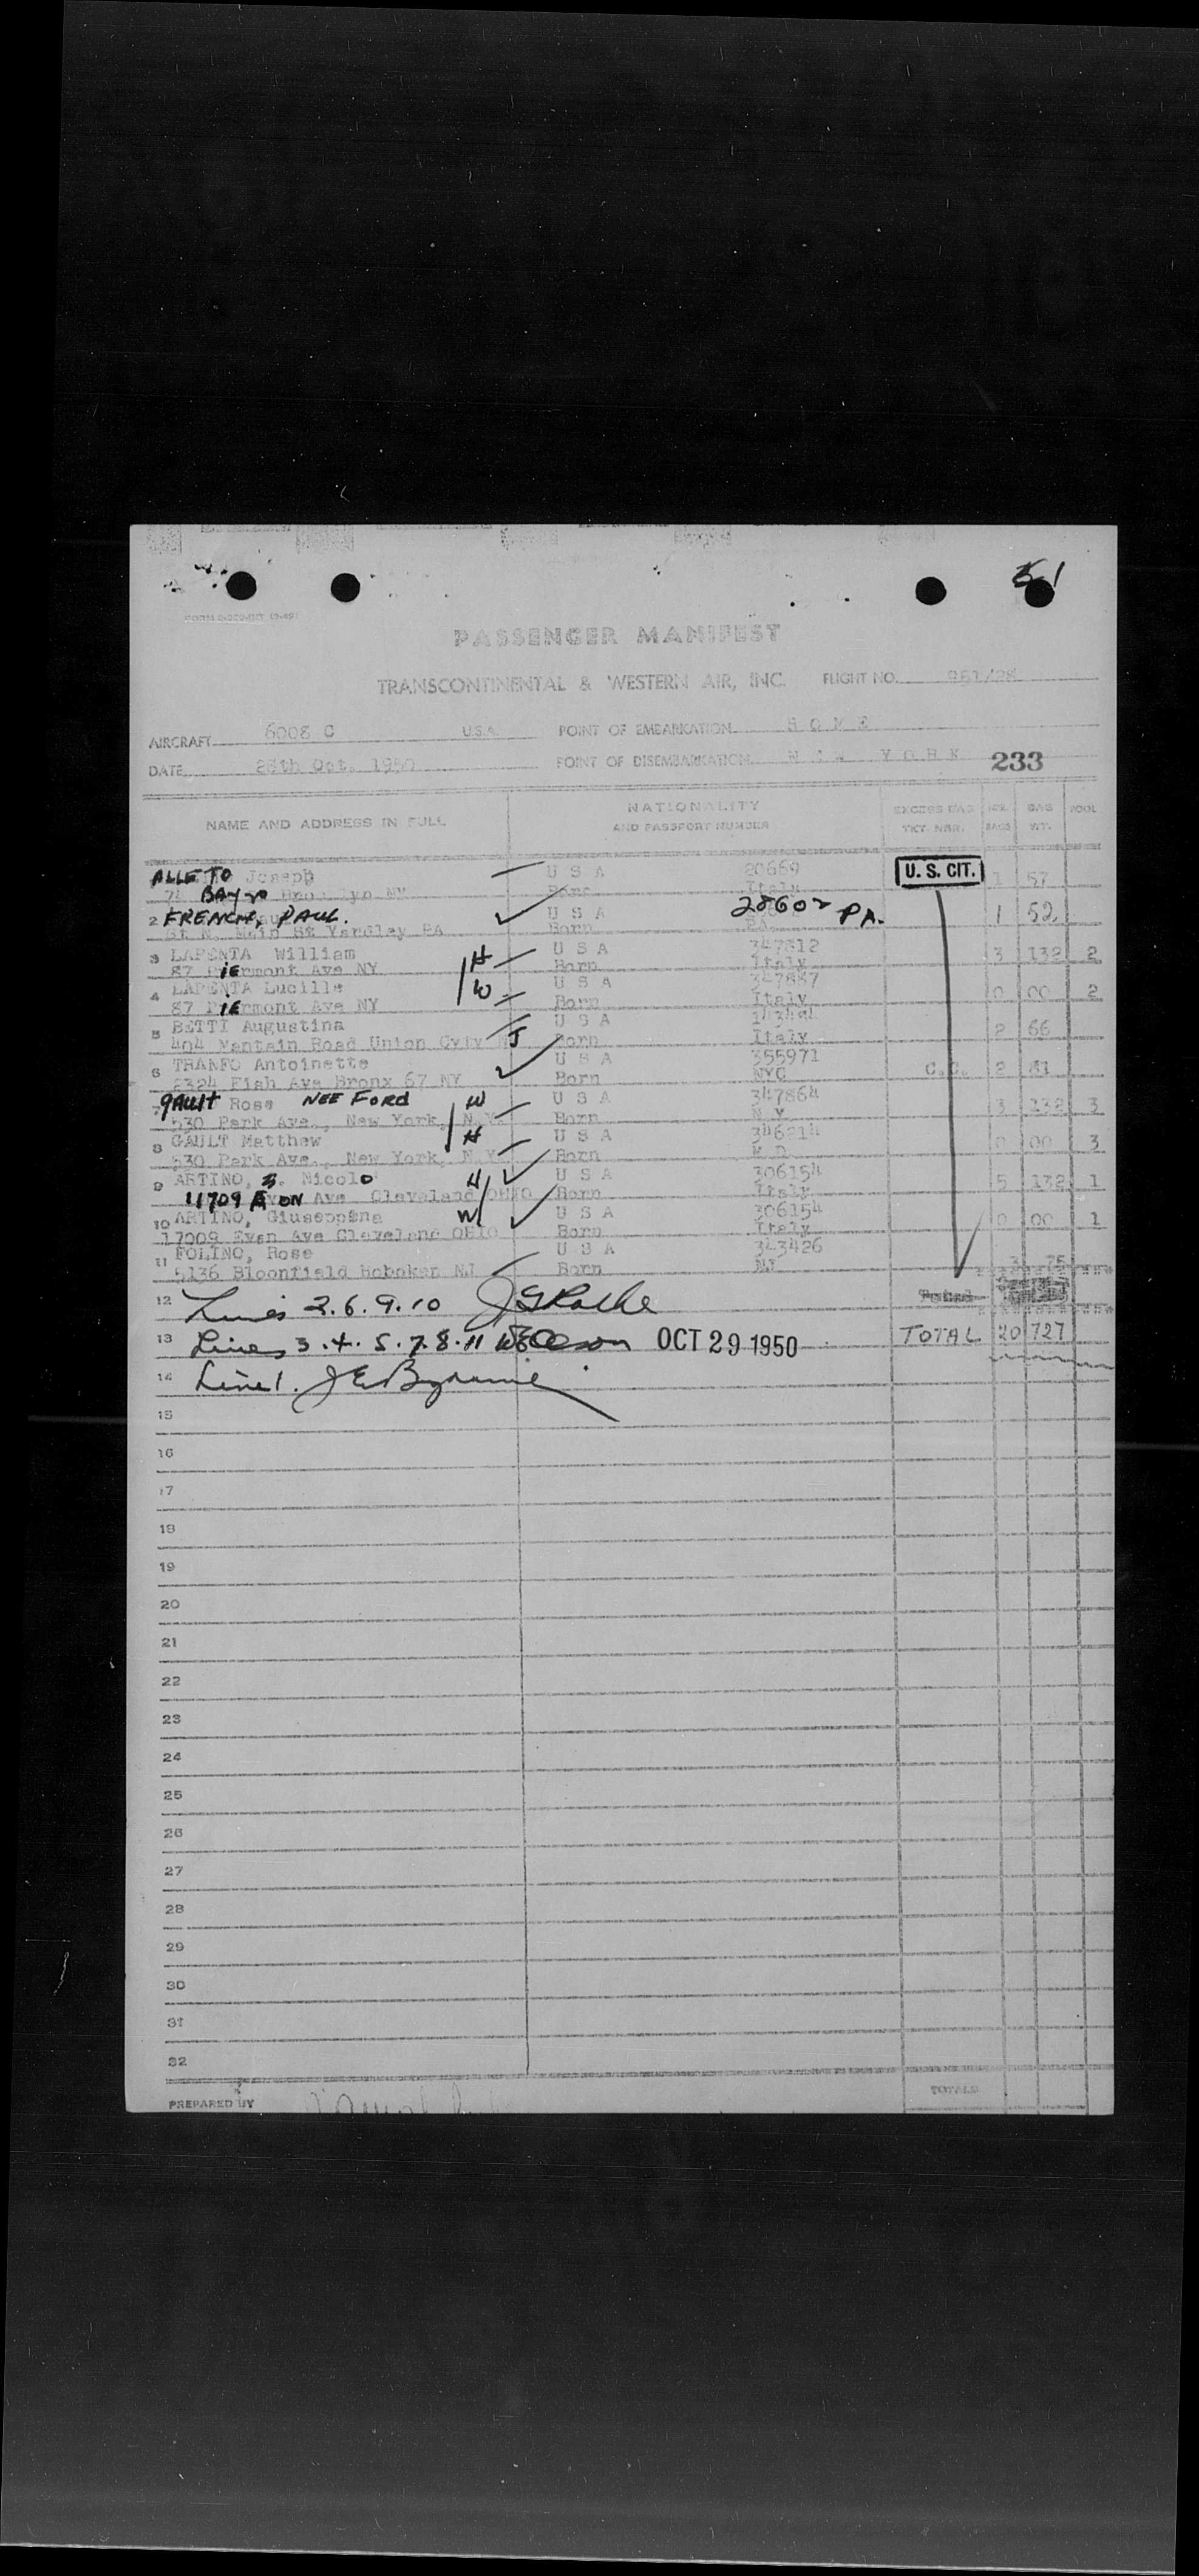 51
PASSENGER MANIFEST
TRANSCONTINENTAL & WESTERN AIR, INC. FLIGHT NO. 951/28
AIRCRAFT 6008 C U.S.A. POINT OF EMBARKATION R O M E
DATE 28th Oct. 1950 POINT OF DISEMBARKATION N E W Y O R K 233
NAME AND ADDRESS IN FULL NATIONALITY AND PASSPORT NUMBER EXCESS BAG TKT. NBR. BAGS BAG WT. POOL
ALLETO Joseph U S A 20669 U. S. CIT. 1 57
BAY Brooklyn NY Born Italy
2 FRENCH, PAUL. U S A 28602 PA. 1 52
St N. Main St Yardley PA Born
3 LAPENTA William H U S A 347812 3 132 2
87 PIERmont Ave NY Born Italy
4 LAPENTA Lucille W U S A 347887 0 00 2
87 PIERmont Ave NY Born Italy
5 BETTI Augustina U S A 2 66
404 Mantain Road Union City NJ Born Italy
6 TRANFO Antoinette U S A 355971 C.C. 2 81
2324 Fish Ave Bronx 67 NY Born NYC
7 GAULT Rose NEE FORD W U S A 347864 3 132 3
530 Park Ave., New York, N.Y. Born N Y
8 GAULT Matthew H U S A 346214 0 00 3
530 Park Ave., New York, N.Y. Born
9 ARTINO, S. Nicolo H U S A 306154 5 132 1
11709 AVON Ave Cleveland OHIO Born Italy
10 ARTINO, Giuseppina W U S A 306154 0 00 1
17009 Even Ave Cleveland OHIO Born Italy
11 FOLINO, Rose U S A 343426 3 75
5136 Bloonfield Hoboken NJ Born NJ
12 Lines 2.6.9.10 Total
13 Lines 3.4.5.7.8.11 OCT 29 1950 TOTAL 20 727
14 Line 1.
15
16
17
18
19
20
21
22
23
24
25
26
27
28
29
30
31
32
PREPARED BY TOTALS